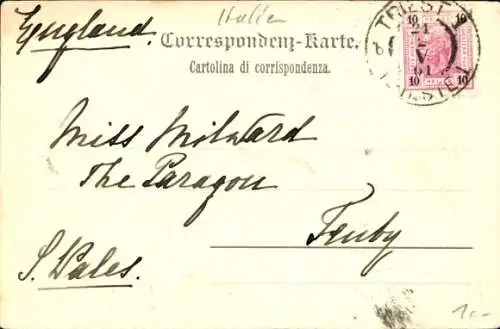 England.
Italien
Correspondenz-Karte.
Cartolina di corrispondenza.
TRIEST
10 10
10 10
Miss Milward
The Paragon
Tenby
S. Wales.